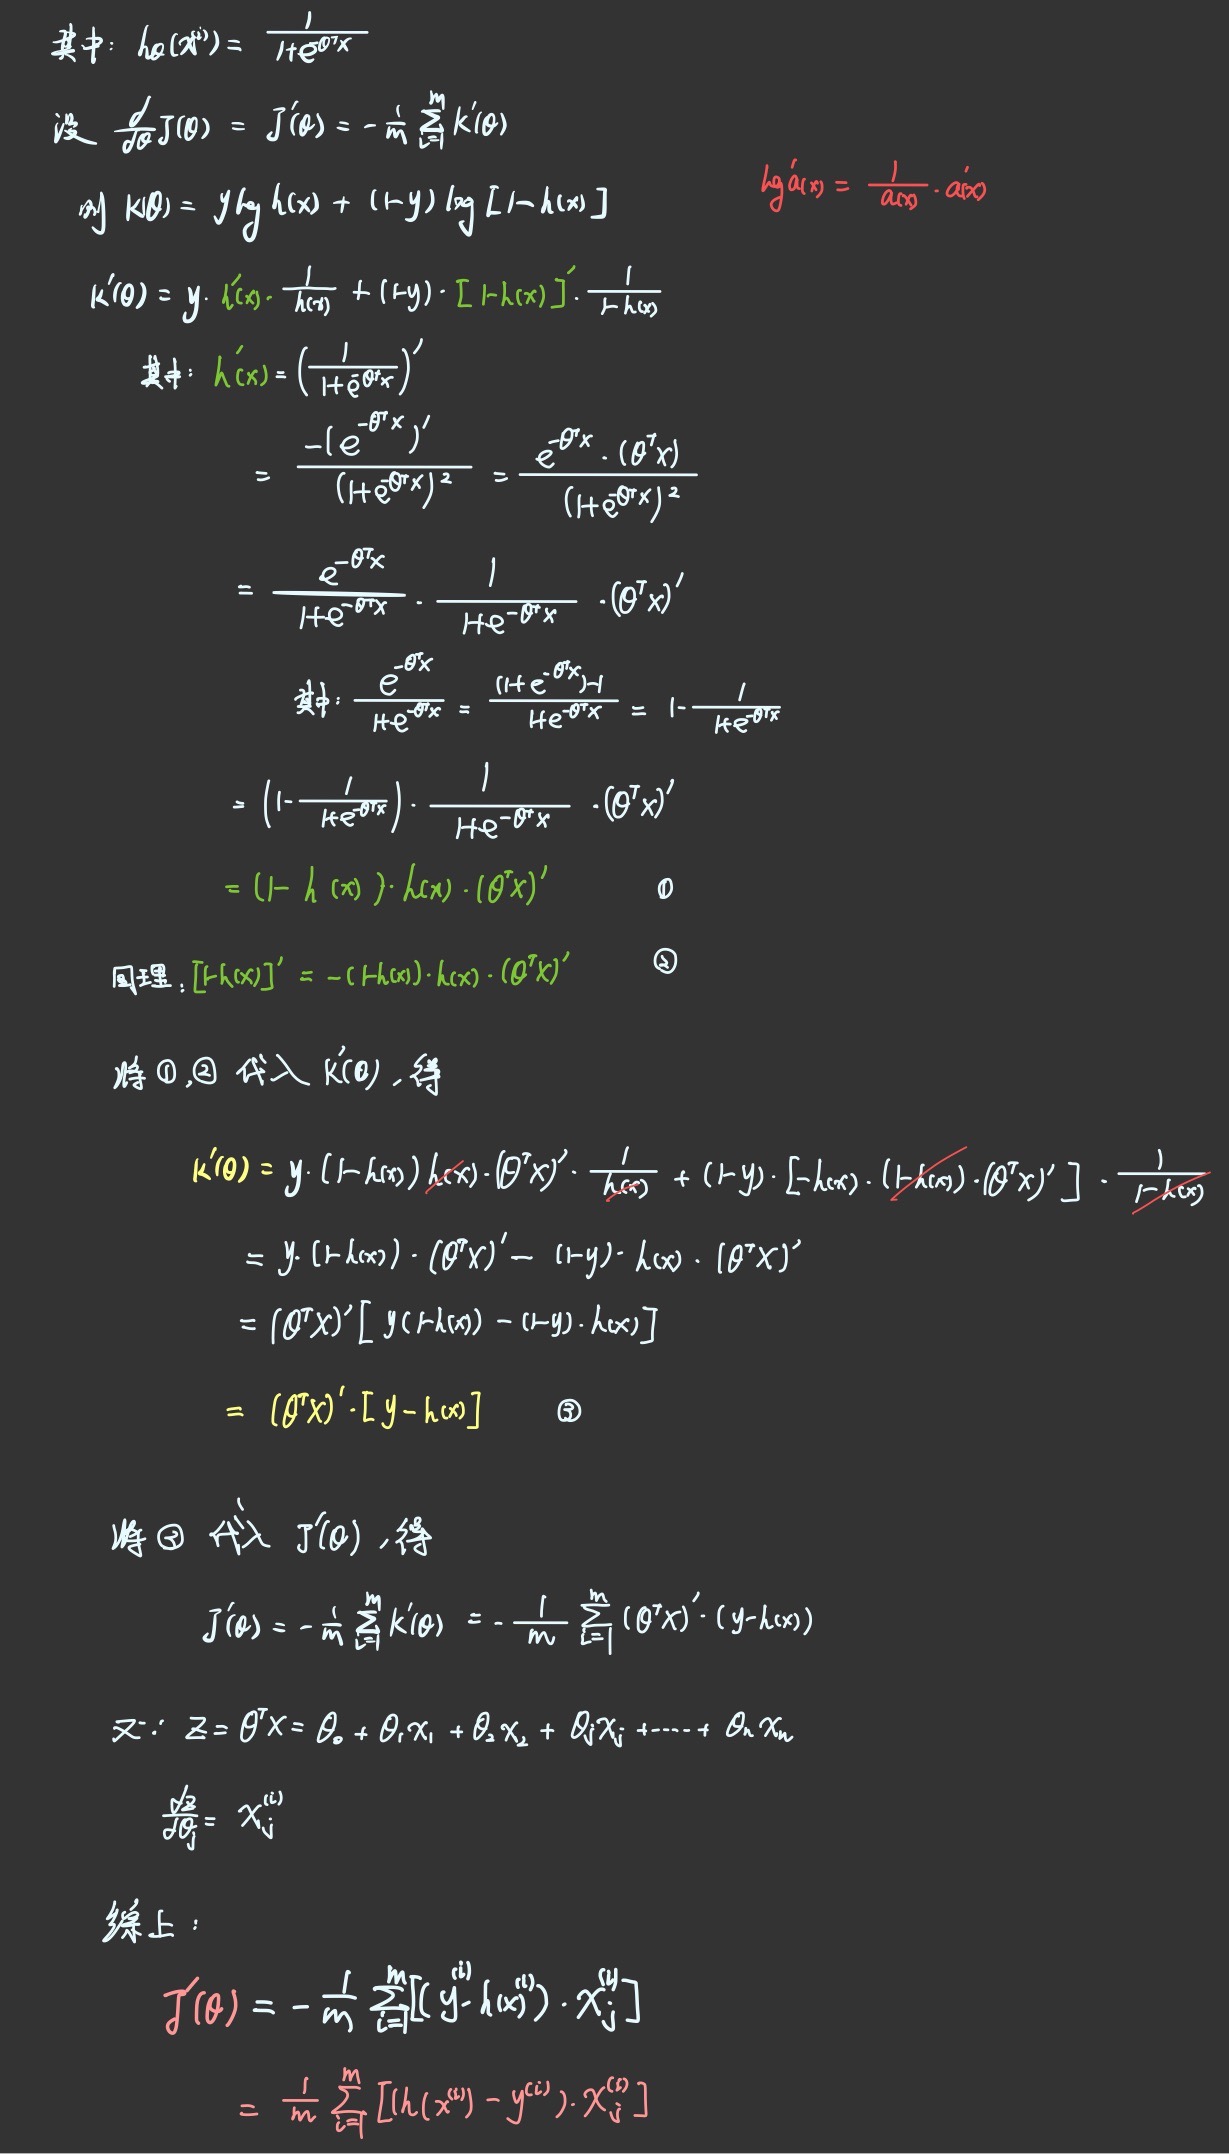 其中: hθ(x⁽ⁱ⁾) = 1/(1+e^(-θᵀx))
设 d/dθ J(θ) = J′(θ) = -1/m Σ_{i=1}^{m} K′(θ)
则 K(θ) = y log h(x) + (1-y) log [1-h(x)]
log′a(x) = 1/a(x) · a′(x)
K′(θ) = y · h′(x) · 1/h(x) + (1-y) · [1-h(x)]′ · 1/(1-h(x))
其中: h′(x) = (1/(1+e^(-θᵀx)))′
= -(e^(-θᵀx))′/(1+e^(-θᵀx))² = e^(-θᵀx) · (θᵀx)/(1+e^(-θᵀx))²
= e^(-θᵀx)/(1+e^(-θᵀx)) · 1/(1+e^(-θᵀx)) · (θᵀx)′
其中: e^(-θᵀx)/(1+e^(-θᵀx)) = ((1+e^(-θᵀx))-1)/(1+e^(-θᵀx)) = 1 - 1/(1+e^(-θᵀx))
= (1 - 1/(1+e^(-θᵀx))) · 1/(1+e^(-θᵀx)) · (θᵀx)′
= (1-h(x)) · h(x) · (θᵀx)′ ①
同理: [1-h(x)]′ = -(1-h(x)) · h(x) · (θᵀx)′ ②
将①,②代入 K′(θ),得
K′(θ) = y · (1-h(x)) h(x) · (θᵀx)′ · 1/h(x) + (1-y) · [-h(x) · (1-h(x)) · (θᵀx)′] · 1/(1-h(x))
= y · (1-h(x)) · (θᵀx)′ - (1-y) · h(x) · (θᵀx)′
= (θᵀx)′[y(1-h(x)) - (1-y) · h(x)]
= (θᵀx)′ · [y-h(x)] ③
将③代入 J′(θ),得
J′(θ) = -1/m Σ_{i=1}^{m} K′(θ) = -1/m Σ_{i=1}^{m} (θᵀx)′ · (y-h(x))
又∵ z = θᵀx = θ₀ + θ₁x₁ + θ₂x₂ + θⱼxⱼ + ····· + θₙxₙ
dz/dθⱼ = xⱼ⁽ⁱ⁾
综上:
J′(θ) = -1/m Σ_{i=1}^{m} [(y⁽ⁱ⁾-h(x)⁽ⁱ⁾) · xⱼ⁽ⁱ⁾]
= 1/m Σ_{i=1}^{m} [(h(x⁽ⁱ⁾) - y⁽ⁱ⁾) · xⱼ⁽ⁱ⁾]